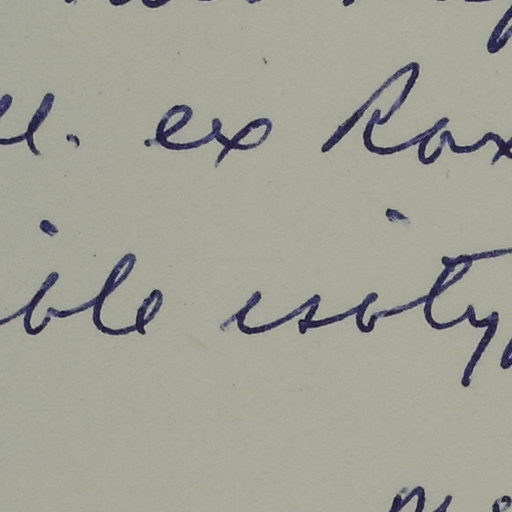 ll. ex Rox
ible isoty